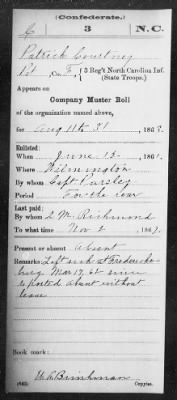 (Confederate.)
C 3 N.C.
Patrick Courtney
Pvt, Co. E, 3 Reg't North Carolina Inf.
(State Troops.)
Appears on
Company Muster Roll
of the organization named above,
for Aug 11 to 31, 1863.
Enlisted:
When June 13, 1861.
Where Wilmington
By whom Capt Parsley
Period For the war
Last paid:
By whom S M Richmond
To what time Nov 2, 1862.
Present or absent Absent
Remarks: Left sick at Fredericks-
burg Mar 17, 62 since
reported absent without
leave
Book mark:
Copyist.